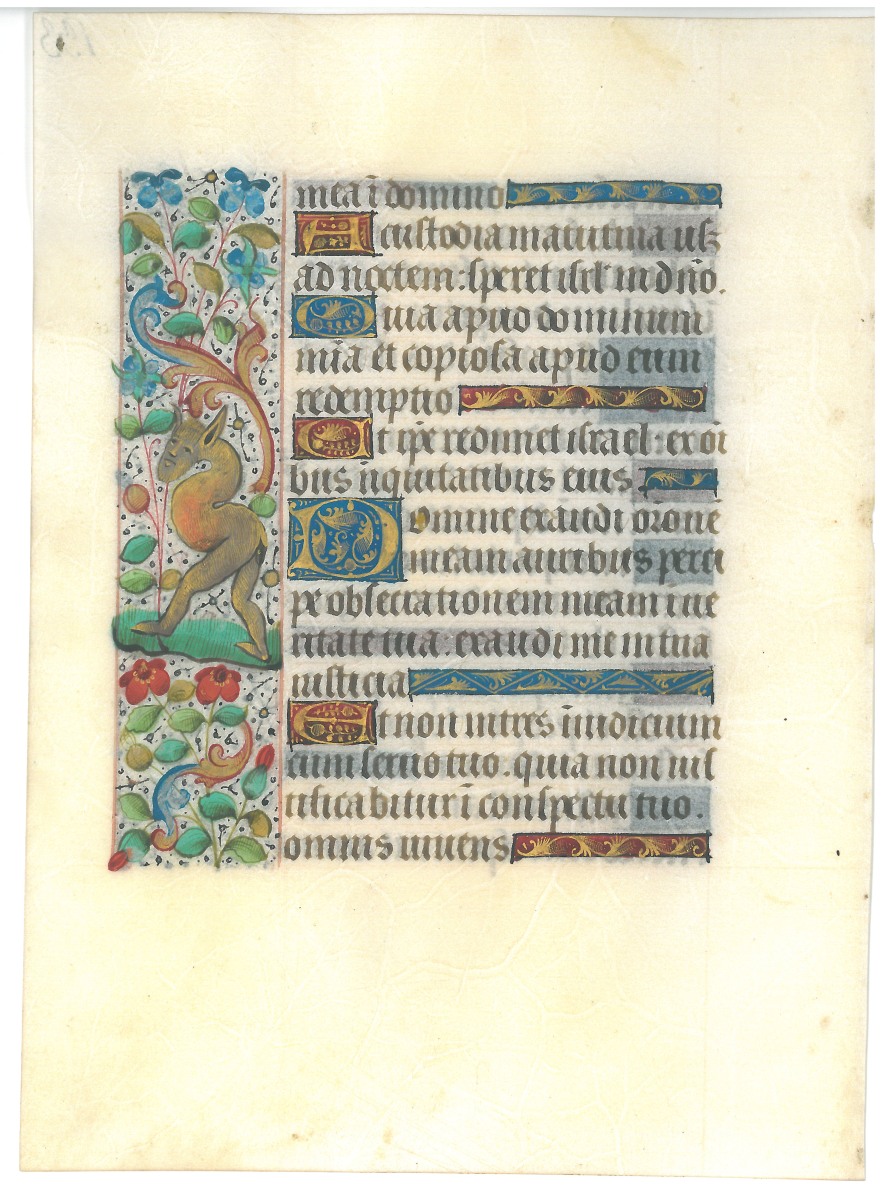 mea ī domino
A custodia matutina usq
ad noctem: speret isrł in dño.
Quia apud dominum
mīa et copiosa apud eum
redemptio
Et ipē redimet israel: ex oī
bus iniquitatibus eius.
Domine exaudi oronē
meam auribus perci
pe obsecrationem meam in ue
ritate tua: exaudi me in tua
iusticia
Et non intres iudicium
cum seruo tuo. quia non ius
tificabitur ī conspectu tuo.
omnis uiuens